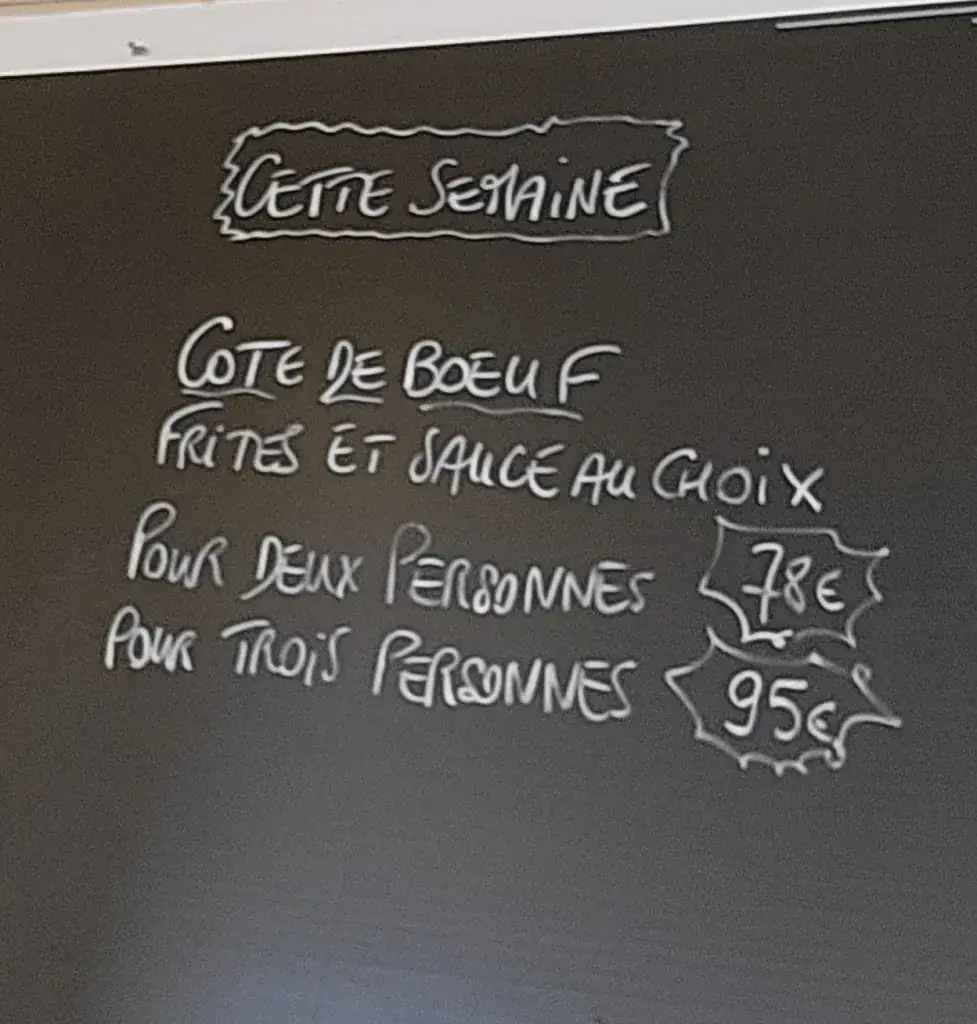 CETTE SEMAINE
COTE DE BOEUF
FRITES ET SAUCE AU CHOIX
POUR DEUX PERSONNES 78€
POUR TROIS PERSONNES 95€